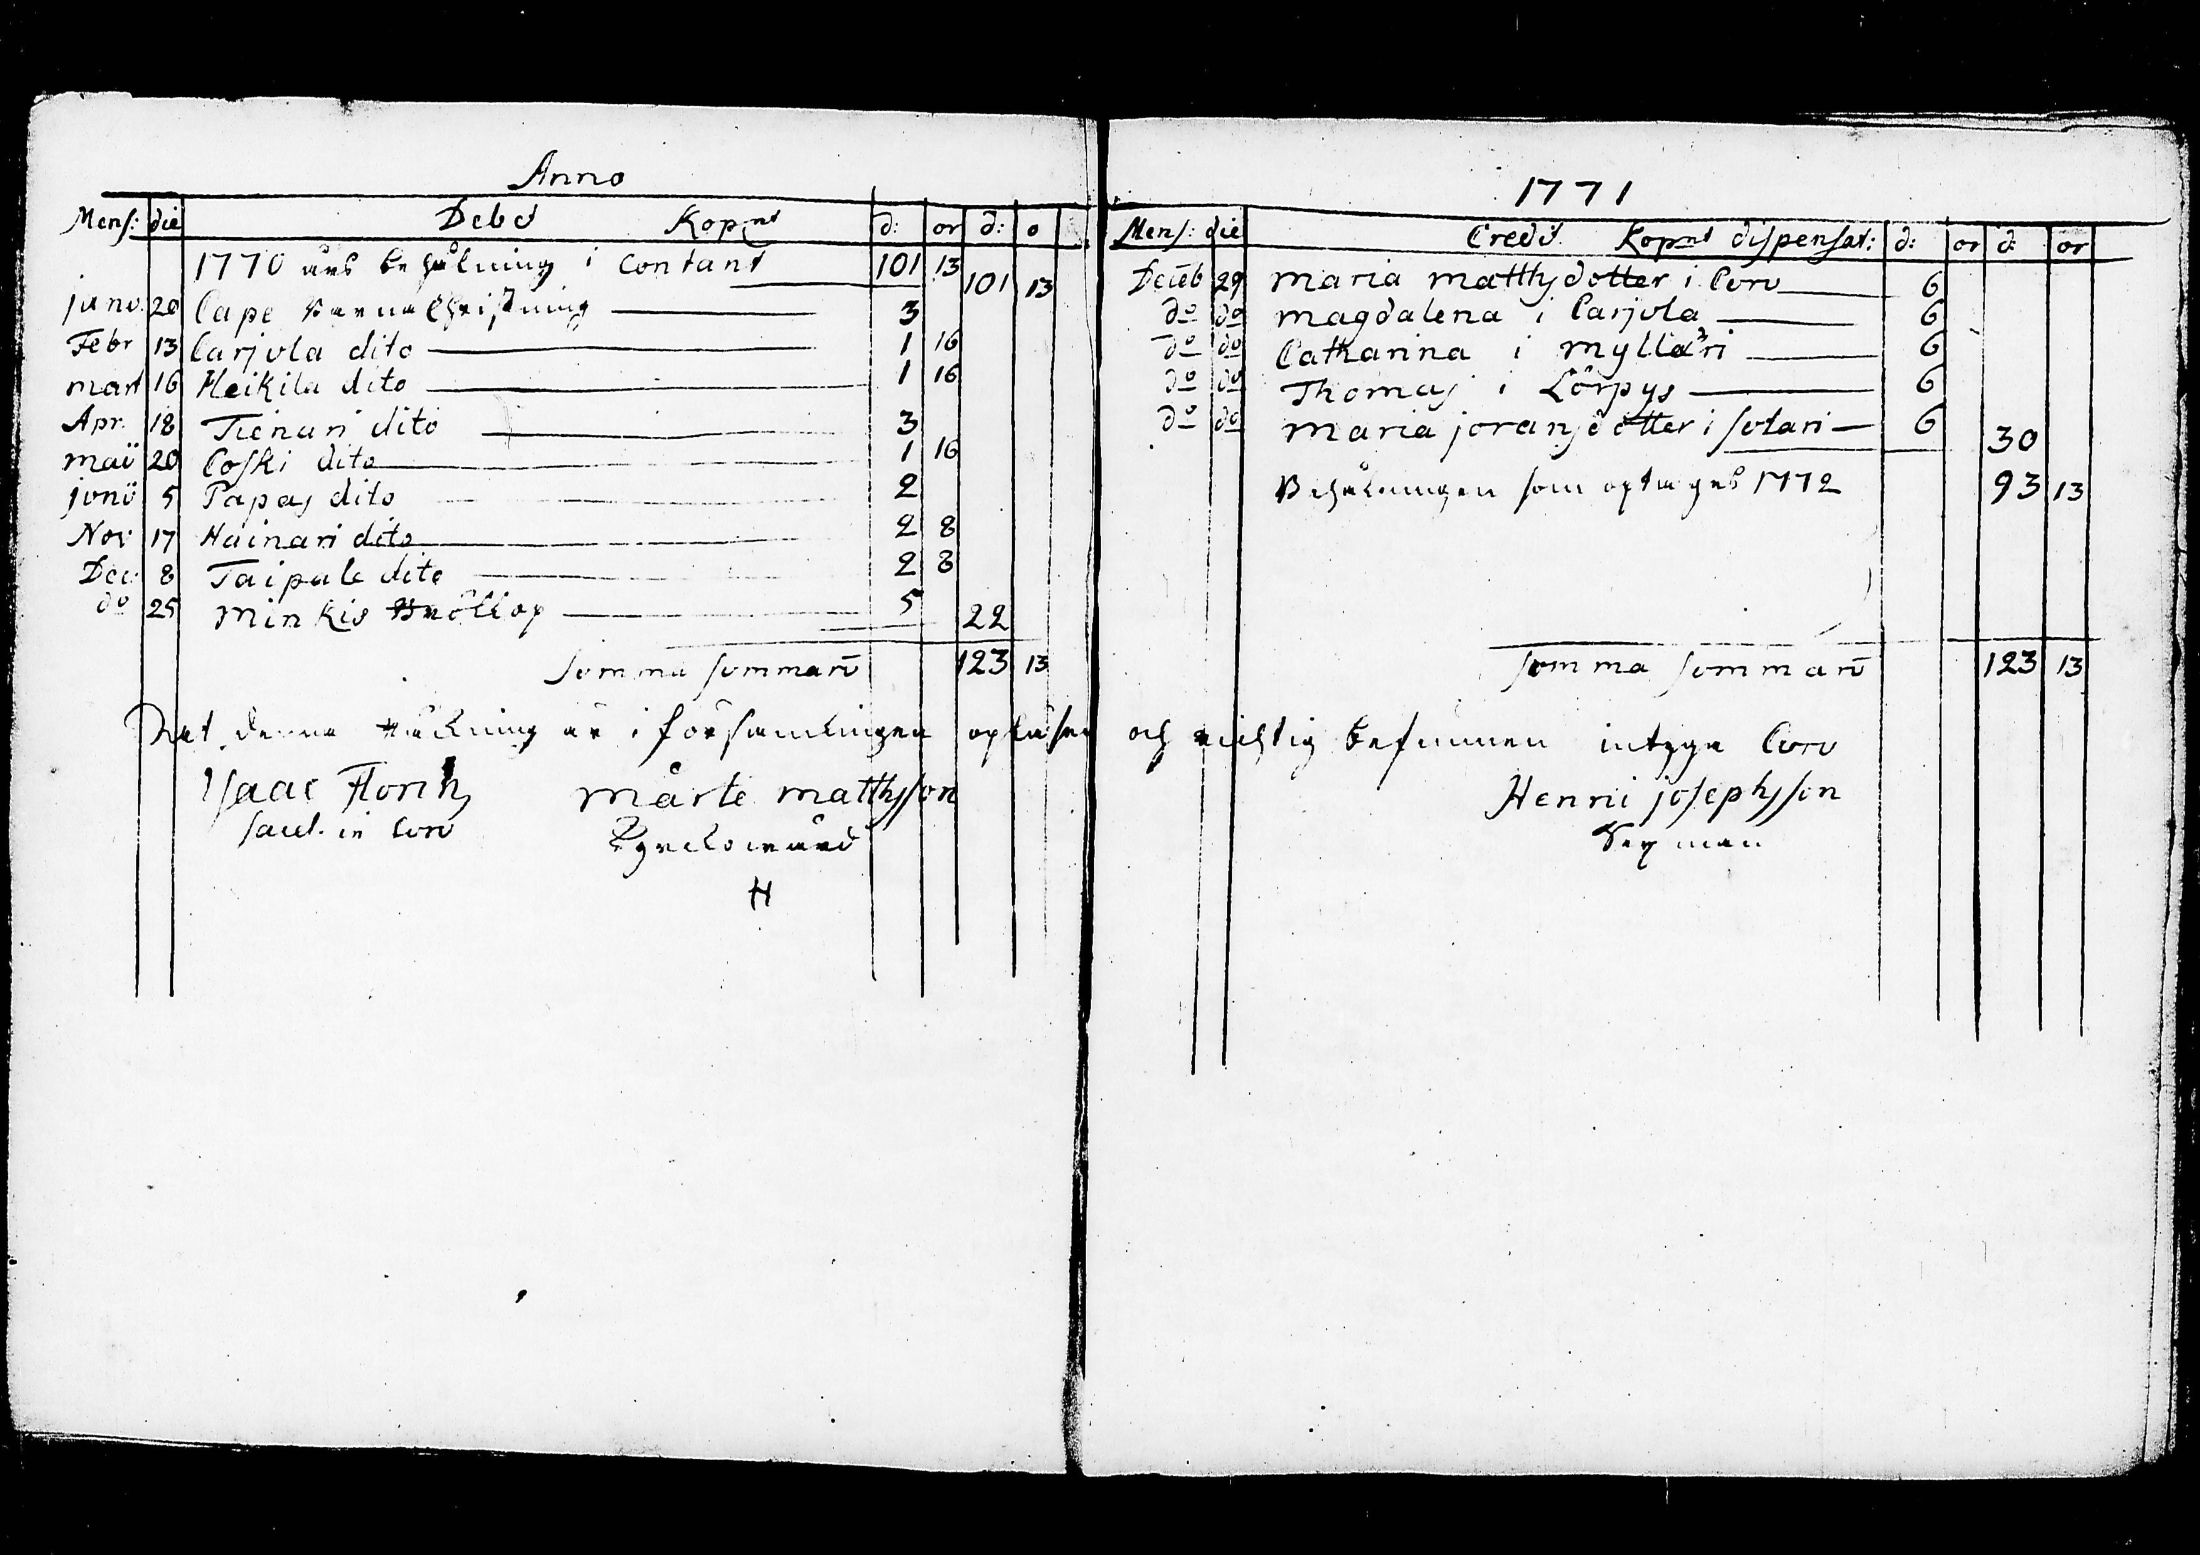 Anno
Mens: die Debet Kopnt d: or d: o
1770 års behålning i Contant 101 13 101 13
janv. 20 Cape barna Christning 3
Febr 13 Carjula dito 1 16
mart 16 Heikila dito 1 16
Apr. 18 Tienari dito 3
maii 20 Coski dito 1 16
junii 5 Papas dito 2
Nov 17 Hainari dito 2 8
Dec: 8 Taipale dito 2 8
do 25 Minkis Bröllop 5 22
Summa Summarū 123 13
1771
Mens: die Credit Kopnt dispensat: d: or d: or
Deceb 29 Maria Matthsdotter i Coru 6
do do Magdalena i Carjula 6
do do Catharina i Myllari 6
do do Thomas i Lörpys 6
do do Maria joransdotter i sutari 6 30
Behålningen som optages 1772 93 13
Summa Summarū 123 13
At denna Räkning är i församlingen opläsen och richtig befunnen intyga Coru
Isaac Florin
sacel. in Coru
Mårte Matthsson
Kyrckovärd
H
Henrii josephsson
Sexman